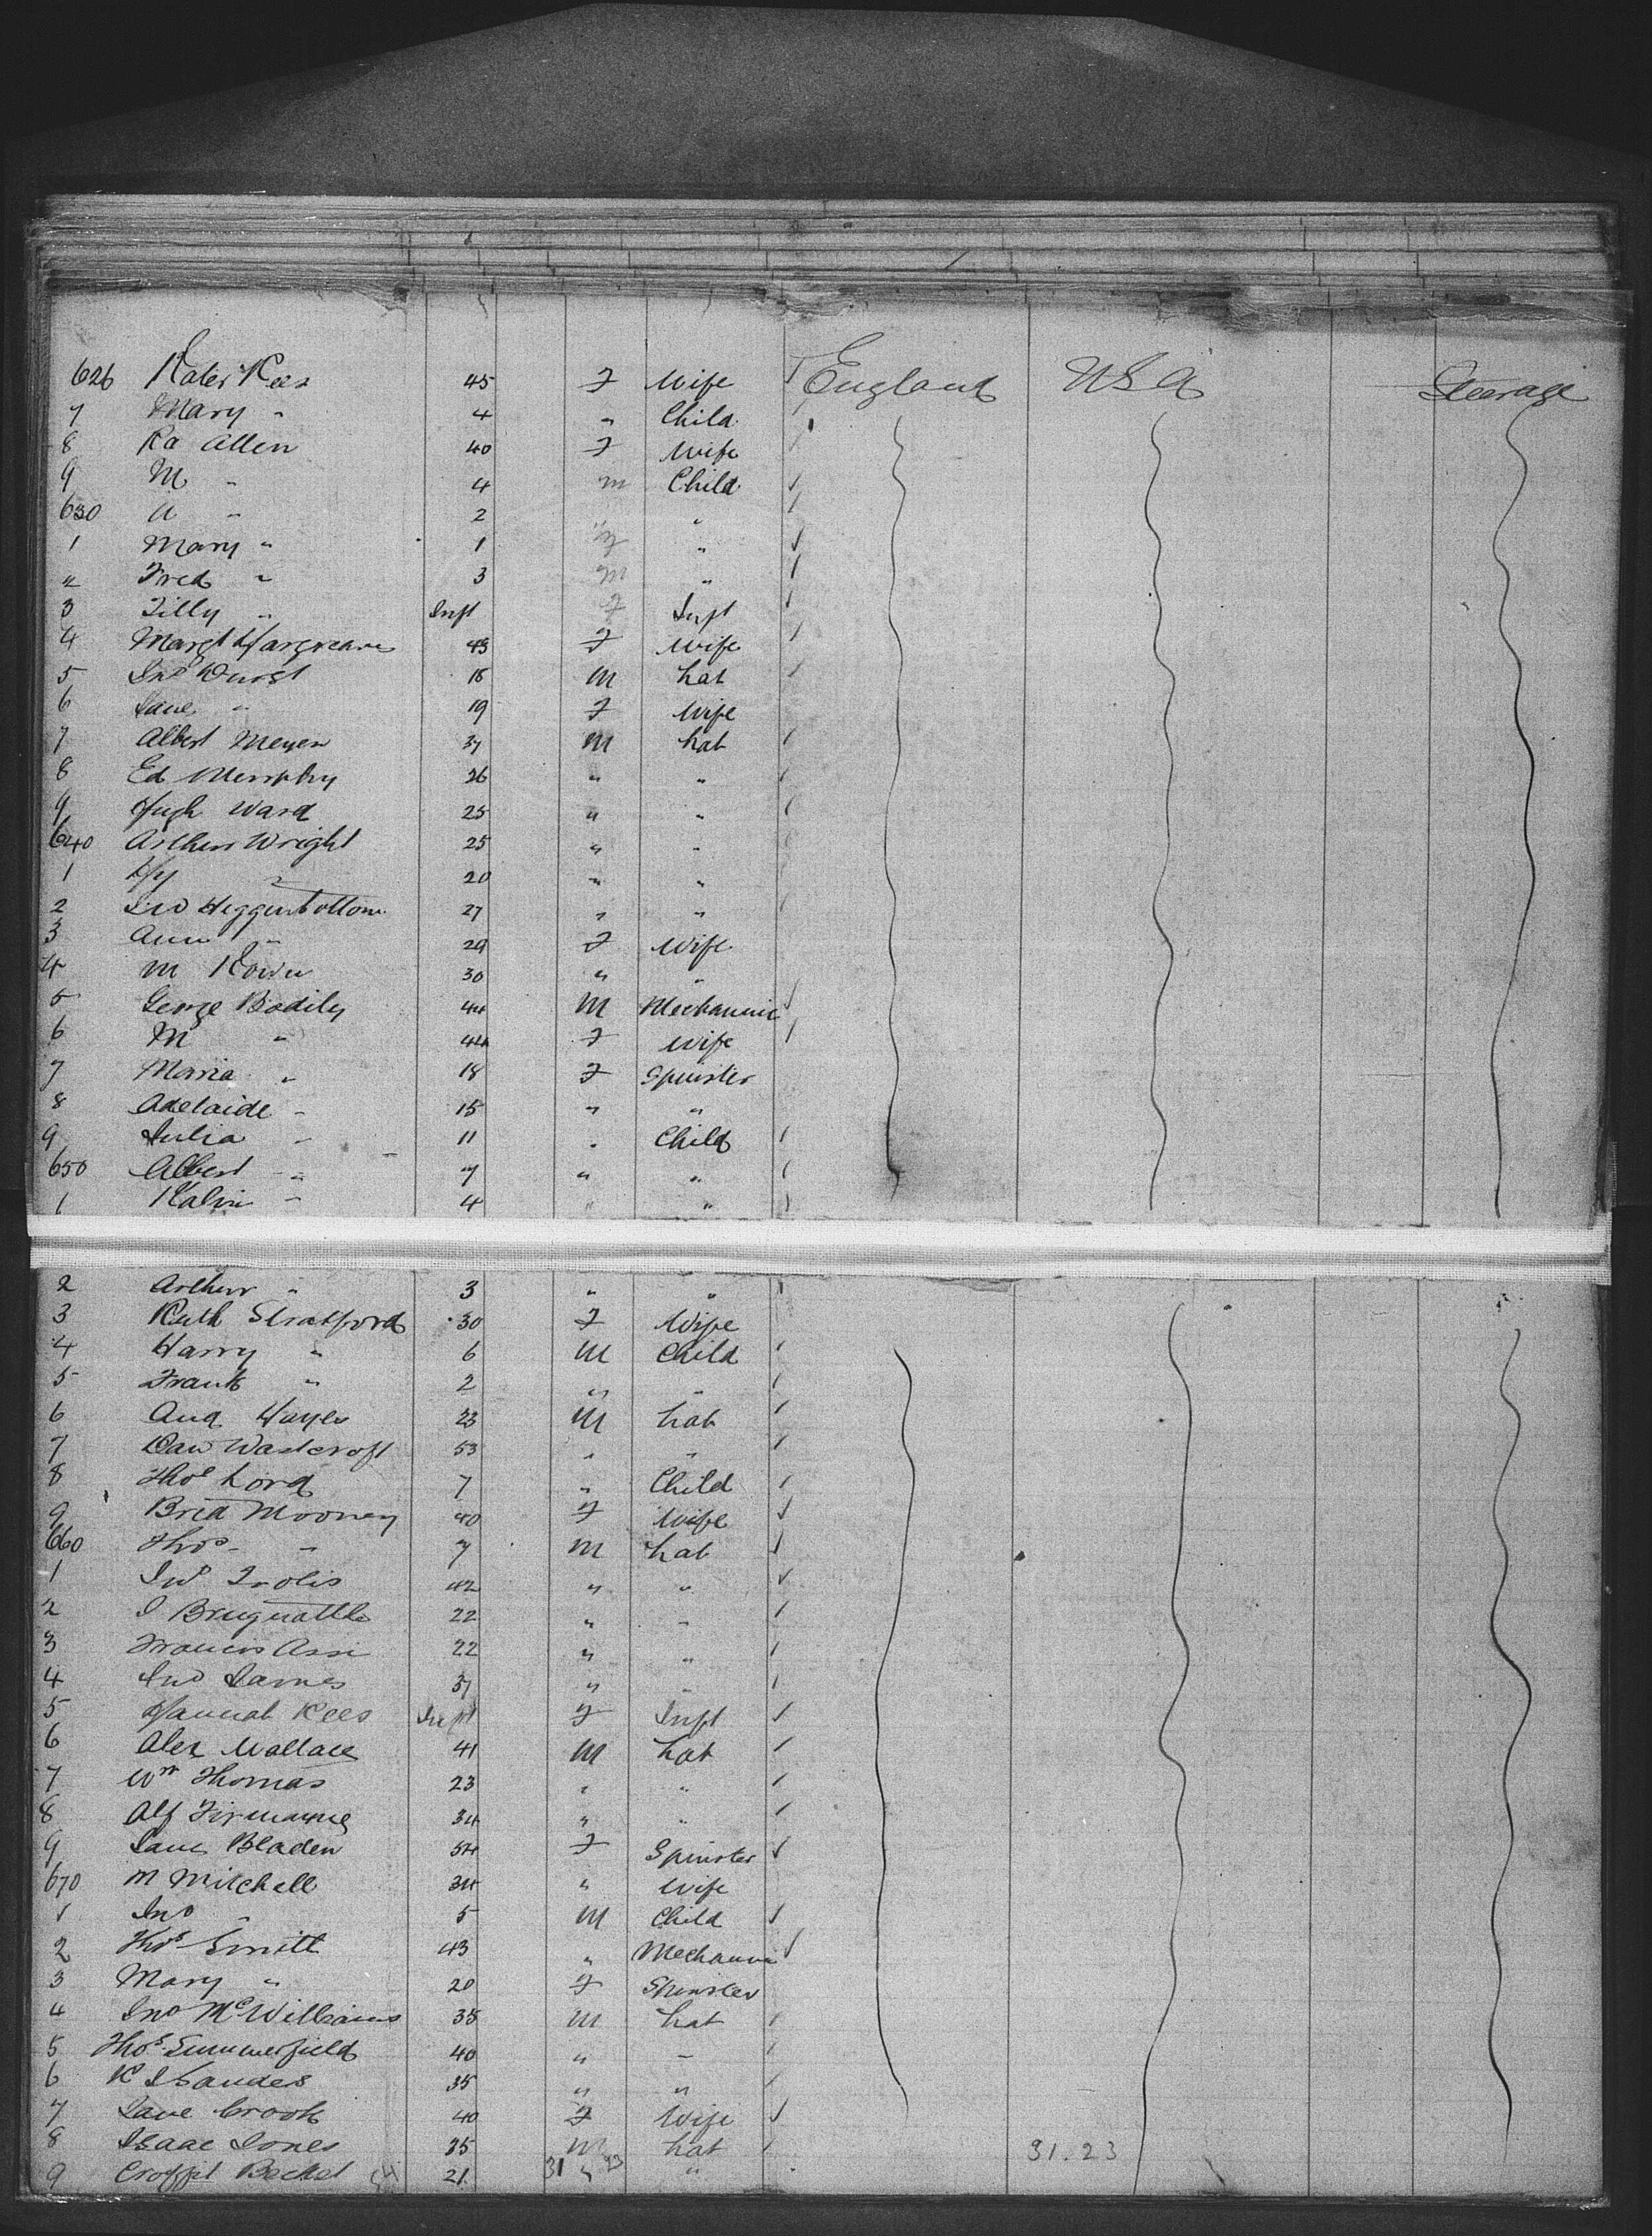 626 Kate Rees 45 F Wife England USA Steerage
7 Mary " 4 " Child
8 Allen 40 F Wife
9 M " 4 m Child
630 A " 2 " "
1 Mary " 1 F "
2 Fred " 3 m "
3 Tilly " Inft F Inft
4 Margt Hargreave 43 F Wife
5 Jno Durst 18 M Lab
6 Jane " 19 F Wife
7 Albert Meyer 37 M Lab
8 Ed Murphy 26 " "
9 Hugh Ward 25 " "
640 Arthur Wright 25 " "
1 Hy " 20 " "
2 Jno Heggenbottom 27 " "
3 Ann " 29 F Wife
4 M 30 " "
5 George Bodily 44 M Mechannic
6 M " 44 F Wife
7 Maria " 18 F Spinster
8 Adelaide " 15 " "
9 Julia " 11 " Child
650 Albert " 7 " "
1 " 4 " "
2 Arthur " 3 " "
3 Ruth Stratford 30 F Wife
4 Harry " 6 M Child
5 Frank " 2 " "
6 Aug Hayes 23 M Lab
7 Dan Wastcroft 53 " "
8 Thos Lord 7 " Child
9 Brid Mooney 40 F Wife
660 Thos " 7 M Lab
1 Jno 42 " "
2 J 22 " "
3 Francis 22 " "
4 Jno James 37 " "
5 Hannah Rees Inft F Inft
6 Alex Wallace 41 M Lab
7 Wm Thomas 23 " "
8 Alf 34 " "
9 Jane Bladen 54 F Spinster
670 M Mitchell 34 " Wife
1 Jno " 5 M Child
2 Thos Smith 43 " Mechannic
3 Mary " 20 F Spinster
4 Jno McWilliams 35 M Lab
5 Thos Summerfield 40 " "
6 R J Sandes 35 " "
7 Jane Crook 40 F Wife
8 Isaac Jones 35 M Lab 31.23
9 Beckel 21 " "